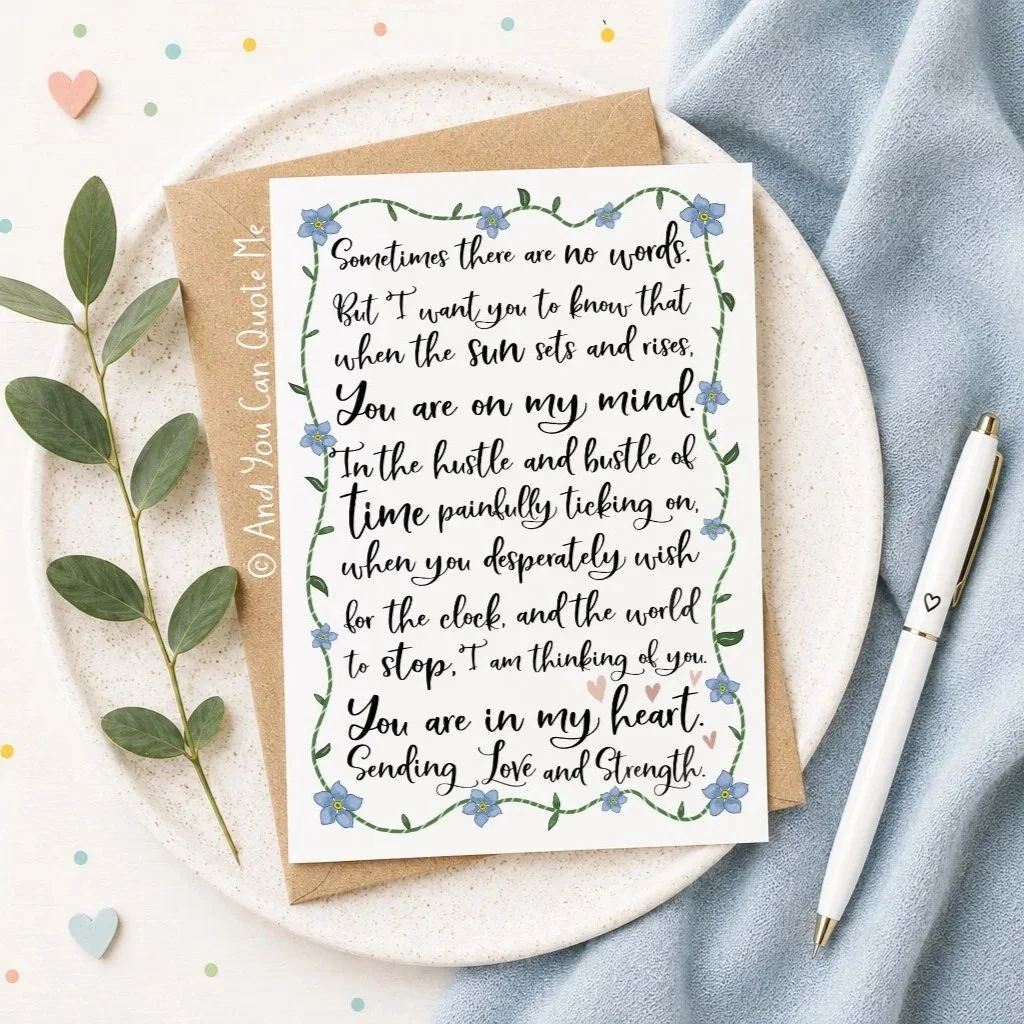 Sometimes there are no words.
But I want you to know that
when the sun sets and rises,
You are on my mind.
In the hustle and bustle of
time painfully ticking on,
when you desperately wish
for the clock, and the world
to stop, I am thinking of you.
You are in my heart.
Sending Love and Strength.
© And You Can Quote Me